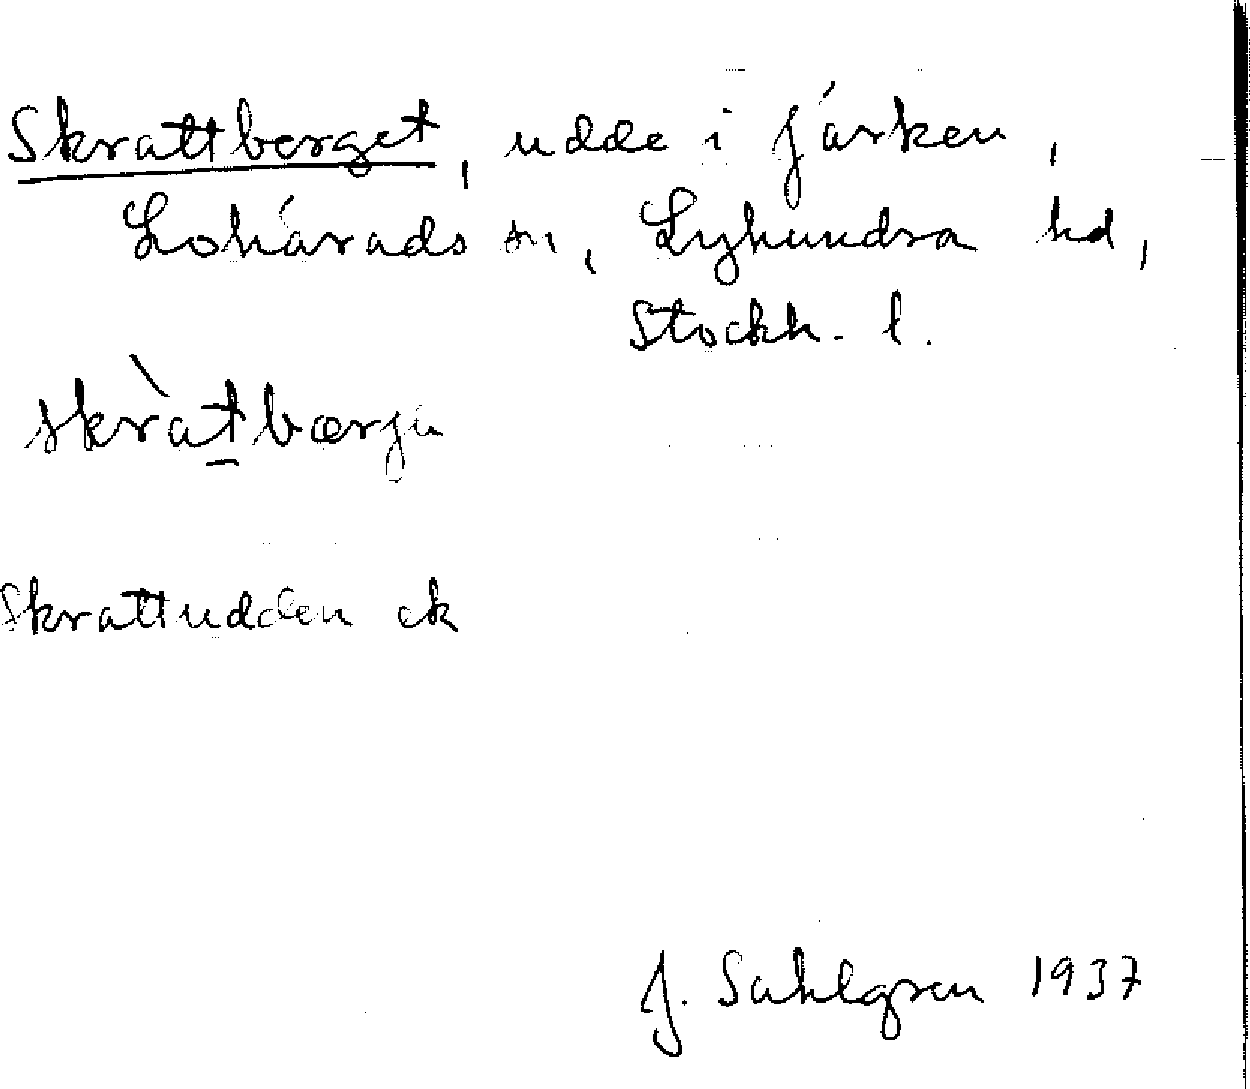 Skrattberget, udde i Järken,
Lohärads sn, Lyhundra hd,
Stockh. l.
skràt̲bærjı̣
Skrattudden ek
J. Sahlgren 1937